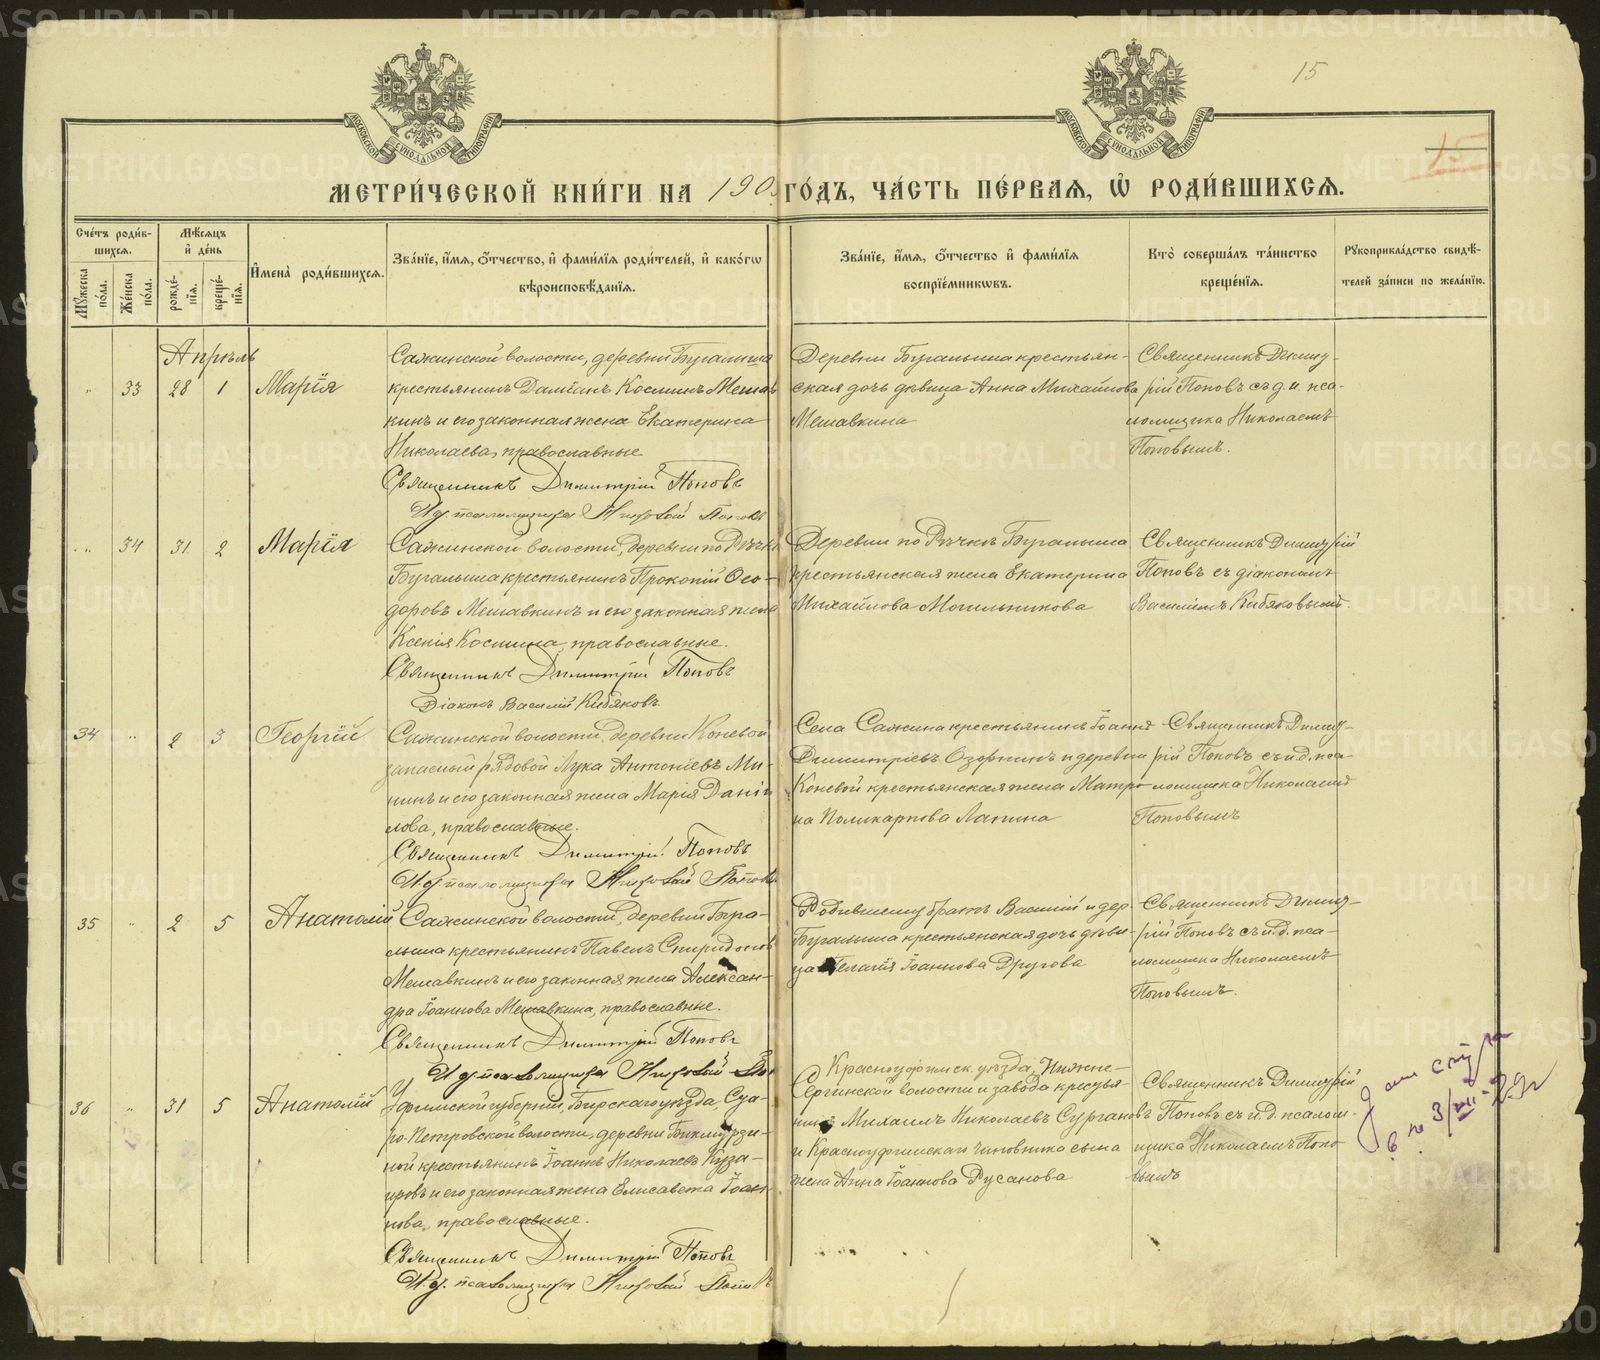 15
15
МЕТРИ́ЧЕСКОЙ КНИ́ГИ НА 190 ГО́ДЪ, ЧА́СТЬ ПЕ́РВАЯ, Ѡ҆ РОДИ́ВШИХСЯ.
Сче́тъ роди́в-
шихся.
Мѣ́сяцъ
и҆ де́нь
Мꙋ́жеска
по́ла.
Же́нска
по́ла.
рожде́-
нїя.
креще́-
нїя.
И҆мена̀ роди́вшихся.
Зва́нїе, и҆́мя, ѻ҆́тчество, и҆ фами́лїя роди́телей, и҆ како́гѡ
вѣроисповѣ́данїя.
Зва́нїе, и҆́мя, ѻ҆́тчество и҆ фами́лїя
воспрїе́мникѡвъ.
Кто̀ соверша́лъ та́инство
креще́нїя.
Рꙋкоприкла́дство свидѣ́-
телей за́писи по жела́нїю.
Апрѣль
33 28 1 Марія
Сажинской волости, деревни Бугалыша
крестьянинъ Даміанъ Косминъ Мешав
кинъ и его законная жена Екатерина
Николаева, православные
Священникъ Димитрій Поповъ
И. д. псаломщика Николай Поповъ
Деревни Бугалыша крестьян-
ская дочь дѣвица Анна Михайлова
Мешавкина
Священникъ Димит-
рій Поповъ съ д. и. пса-
ломщика Николаемъ
Поповымъ.
34 31 2 Марія
Сажинской волости, деревни по Рѣчкѣ
Бугалыша крестьянинъ Прокопій Ѳео-
доровъ Мешавкинъ и его законная жена
Ксенія Космина, православные.
Священникъ Димитрій Поповъ
Діаконъ Василій Кибяковъ
Деревни по Рѣчкѣ Бугалыша
крестьянская жена Екатерина
Михайлова Могильникова
Священникъ Димитрій
Поповъ съ діакономъ
Василіемъ Кибяковымъ.
34 2 3 Георгій
Сажинской волости, деревни Коневой
запасный рядовой Лука Антоніевъ Ми-
нинъ и его законная жена Марія Даніи
лова, православные.
Священникъ Димитрій Поповъ
И. д. псаломщика Николай Поповъ
Села Сажина крестьянинъ Іоаннъ
Димитріевъ Озорнинъ и деревни
Коневой крестьянская жена Матро
на Поликарпова Лапина
Священникъ Димит-
рій Поповъ съ и. д. пса-
ломщика Николаемъ
Поповымъ
35 2 5 Анатолій
Сажинской волости, деревни Буга-
лыша крестьянинъ Павелъ Спиридоновъ
Мешавкинъ и его законная жена Алексан-
дра Іоаннова Мешавкина, православные.
Священникъ Димитрій Поповъ
И. д. псаломщика Николай По
Родившемуся братъ Василій и дер.
Бугалыша крестьянская дочь дѣви-
ца Пелагія Іоаннова Другова
Священникъ Димит-
рій Поповъ съ и. д. пса-
ломщика Николаемъ
Поповымъ.
36 31 5 Анатолій
Уфимской губерніи, Бирскаго уѣзда, Суа-
по-Петровской волости, деревни Бикмурзи-
ной крестьянинъ Іоаннъ Николаевъ
и его законная жена Елисавета Іоан
нова, православные.
Священникъ Димитрій Поповъ
И. д. псаломщика Николай Поповъ
Красноуфимск. уѣзда, Нижне-
Сергинской волости и завода крестья-
нинъ Михаилъ Николаевъ Сургановъ
и Красноуфимскаго чиновника сына
жена Анна Іоаннова Русанова
Священникъ Димитрій
Поповъ съ и. д. псалом-
щика Николаемъ Попо
вымъ